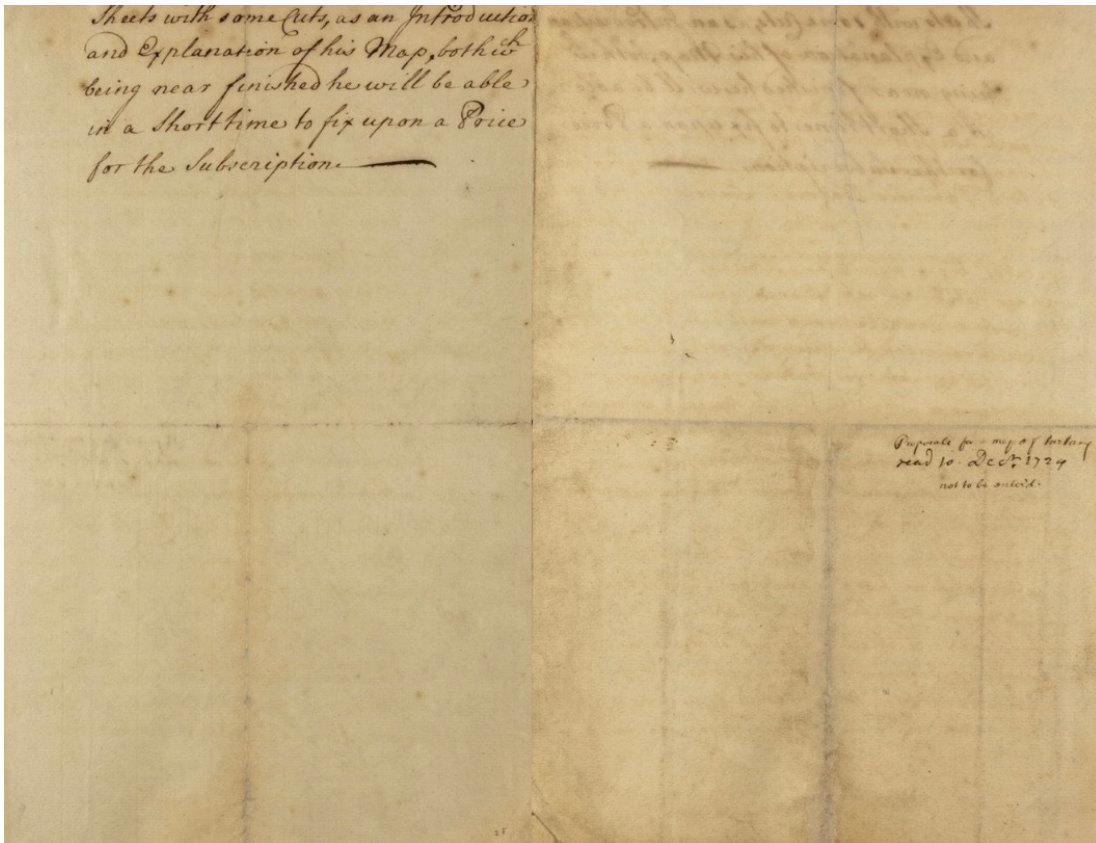 Sheets with some Cuts, as an Introduction
and Explanation of his Map, both wch
being near finished he will be able
in a Short time to fix upon a Price
for the Subscription.
Proposals for a map of tartary
read 10. Decr. 1724
not to be
25